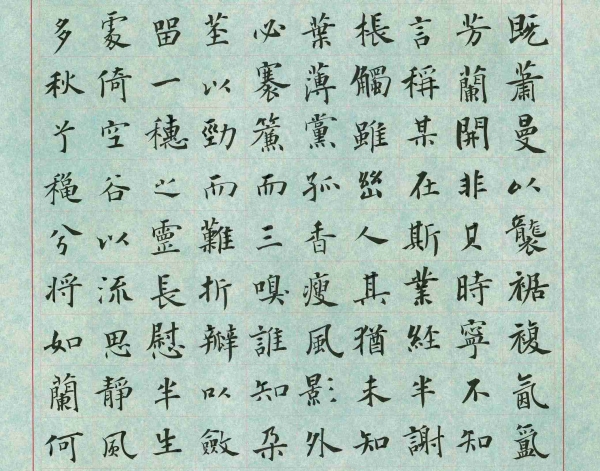 既蕭曼以襲裾複氤氳
芳蘭開非只時寧不知
言稱某在斯業經半謝
棖觸雖幽人其猶未知
葉薄黨孤香瘦風影外
必褰簾而三嗅誰知朵
莖以勁而難折瓣以斂
留一穗之靈長慰半生
處倚空谷以流思靜風
多秋穐兮將如蘭何